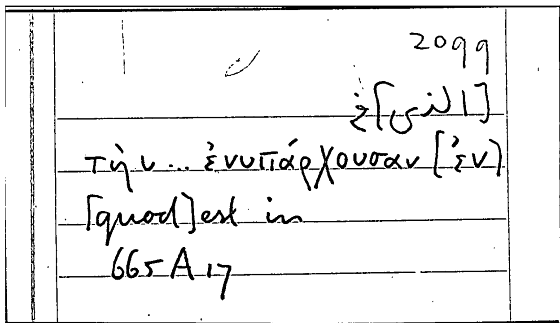 2099
[الذي] في
τὴν ... ἐνυπάρχουσαν (ἐν)
[quod] est in
665 A 17